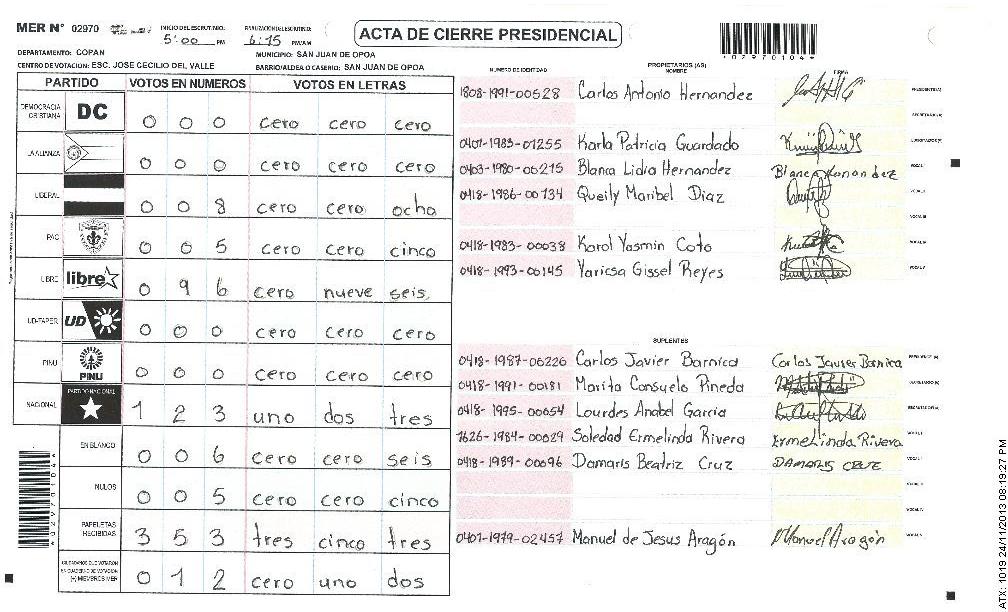 MER N° 02970
INICIO DEL ESCRUTINIO: 5:00 PM
FINALIZACION DEL ESCRUTINIO: 6:15 PM/AM
ACTA DE CIERRE PRESIDENCIAL
*02970104*
DEPARTAMENTO: COPAN
MUNICIPIO: SAN JUAN DE OPOA
CENTRO DE VOTACION: ESC. JOSE CECILIO DEL VALLE
BARRIO/ALDEA O CASERIO: SAN JUAN DE OPOA
PARTIDO VOTOS EN NUMEROS VOTOS EN LETRAS
DEMOCRACIA CRISTIANA DC 0 0 0 cero cero cero
LA ALIANZA 0 0 0 cero cero cero
LIBERAL 0 0 8 cero cero ocho
PAC 0 0 5 cero cero cinco
LIBRE libre 0 9 6 cero nueve seis
UD-FAPER UD 0 0 0 cero cero cero
PINU PINU 0 0 0 cero cero cero
NACIONAL PARTIDO NACIONAL 1 2 3 uno dos tres
EN BLANCO 0 0 6 cero cero seis
NULOS 0 0 5 cero cero cinco
PAPELETAS RECIBIDAS 3 5 3 tres cinco tres
CIUDADANOS QUE VOTARON EN CUADERNO DE VOTACION (+) MIEMBROS MER 0 1 2 cero uno dos
NUMERO DE IDENTIDAD PROPIETARIOS (AS) NOMBRE FIRMA
1808-1991-00528 Carlos Antonio Hernandez PRESIDENTE(A)
SECRETARIO(A)
0401-1983-01255 Karla Patricia Guardado ESCRUTADOR(A)
0403-1980-00215 Blanca Lidia Hernandez Blanca Hernandez VOCAL I
0418-1986-00134 Queily Maribel Diaz VOCAL II
VOCAL III
0418-1983-00038 Karol Yasmin Coto VOCAL IV
0418-1993-00145 Yaricsa Gissel Reyes VOCAL V
SUPLENTES
0418-1987-00226 Carlos Javier Barnica Carlos Javier Barnica PRESIDENTE(A)
0418-1991-00181 Marita Consuelo Pineda SECRETARIO(A)
0418-1995-00054 Lourdes Anabel Garcia ESCRUTADOR(A)
1626-1984-00029 Soledad Ermelinda Rivera Ermelinda Rivera VOCAL I
0418-1989-00096 Damaris Beatriz Cruz DAMARIS CRUZ VOCAL II
VOCAL III
VOCAL IV
0401-1979-02457 Manuel de Jesus Aragón Manuel Aragón VOCAL V
*02970104*
ATX: 1019 24/11/2013 08:19:27 PM